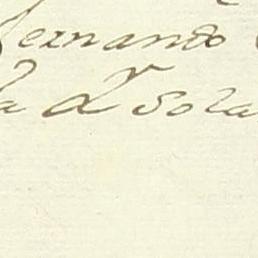 Fernando
a d.r Sola